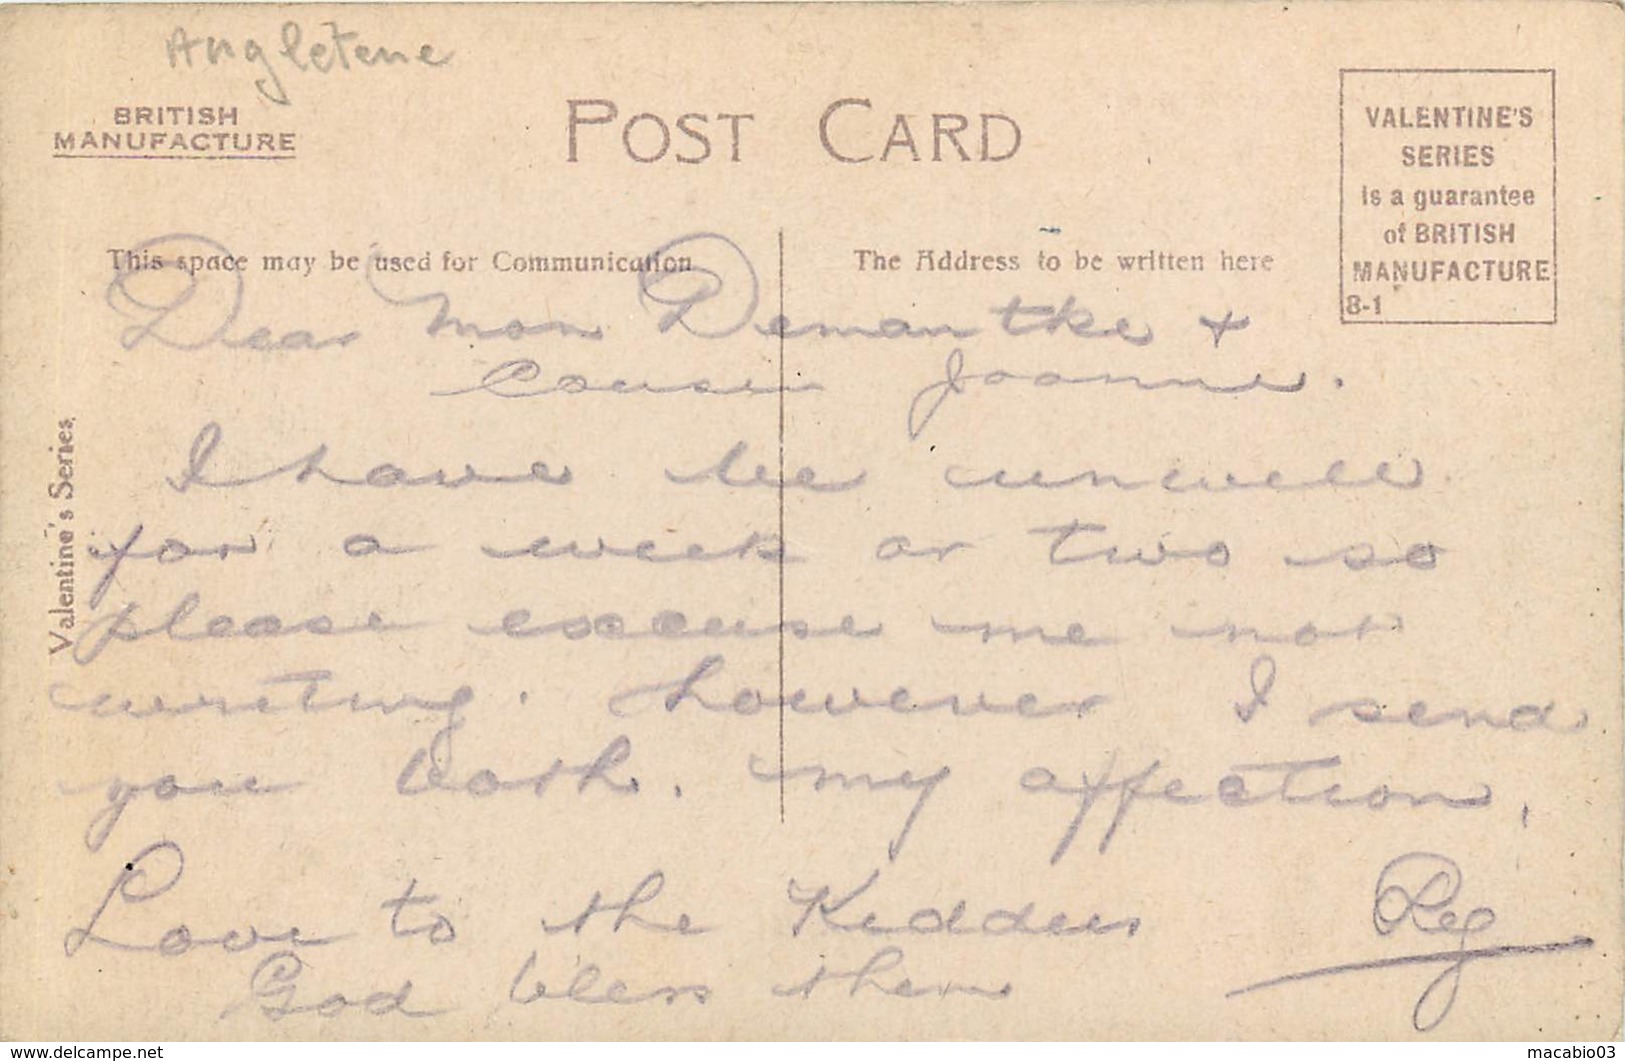 Angleterre
BRITISH
MANUFACTURE
POST CARD
VALENTINE'S
SERIES
is a guarantee
of BRITISH
MANUFACTURE
8-1
This space may be used for Communication
The Address to be written here
Valentine's Series.
Dear Mon Demantke +
Cousin Joanne.
I have be unwell
for a week or two so
please excuse me not
writing. however I send
you both. my affection,
Love to the Kiddies Reg
God bless them
www.delcampe.net
macabio03